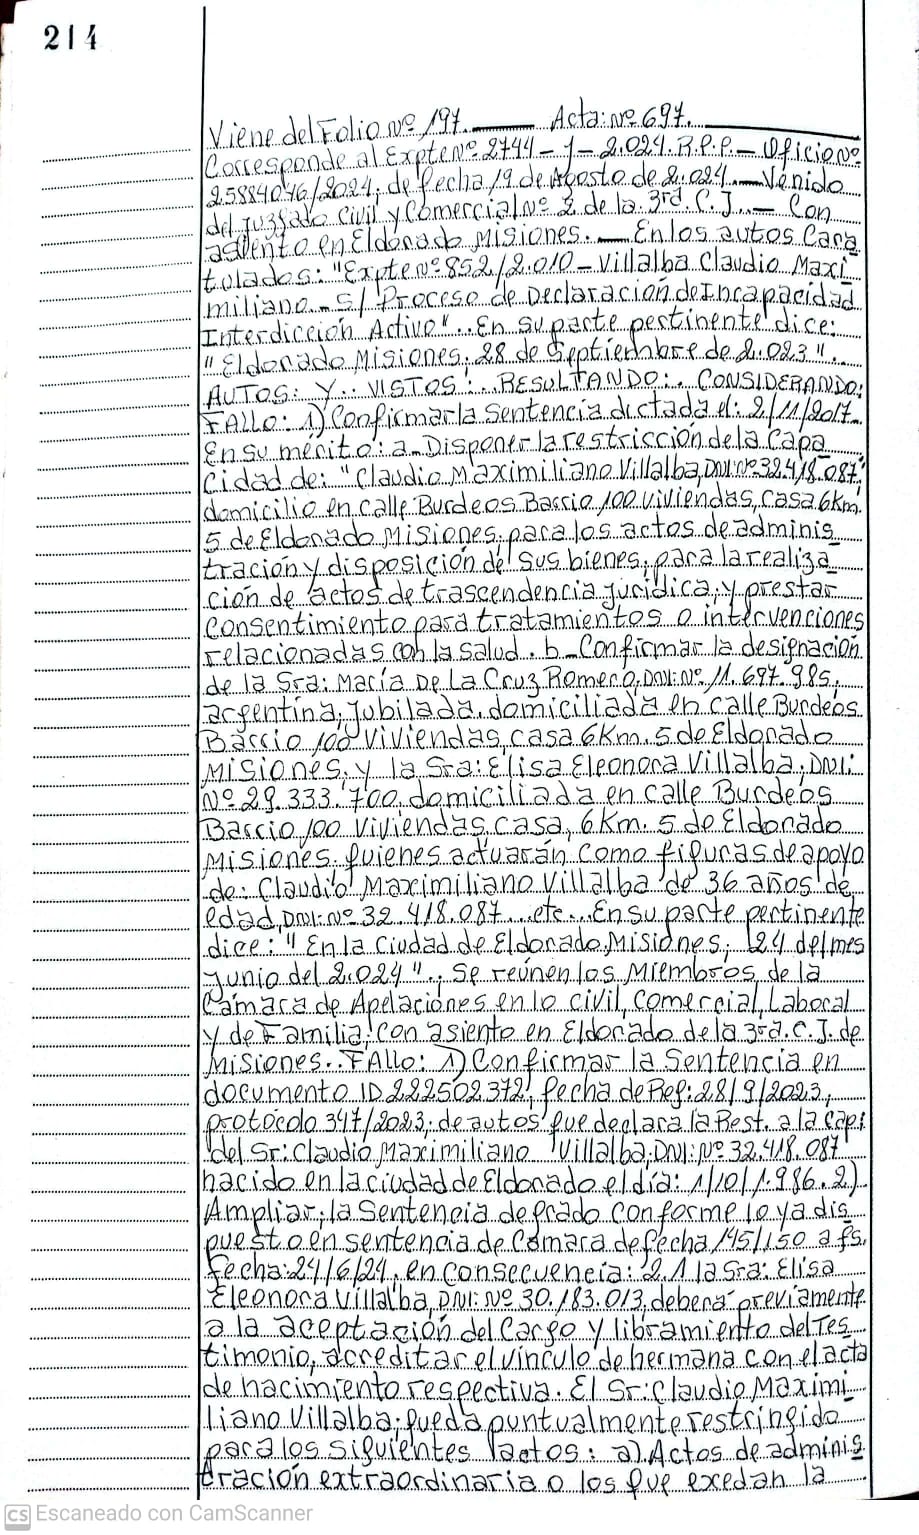 214
Viene del Folio Nº 197. Acta: Nº 697.
Corresponde al Expte Nº 2744 - J - 2.024. R.P.P. - Oficio Nº
25884046/2024; de fecha 19 de Agosto de 2.024. - Venido
del Juzgado Civil y Comercial Nº 2 de la 3rd. C.J. - Con
asiento en Eldorado Misiones. - En los autos Cara
tulados: "Expte Nº 852/2.010 - Villalba Claudio Maxi
miliano - S/ Proceso de Declaración de Incapacidad
Interdicción Activo".. En su parte pertinente dice:
"Eldorado Misiones, 28 de Septiembre de 2.023".
AUTOS: Y.. VISTOS:. RESULTANDO:. CONSIDERANDO:
FALLO: 1) Confirmar la Sentencia dictada el: 2/11/2017.
En su mérito: a- Disponer la restricción de la Capa
cidad de: "Claudio Maximiliano Villalba, DNI: Nº 32.418.087"
domicilio en calle Burdeos Barrio 100 viviendas, casa 6 Km.
5 de Eldorado Misiones; para los actos de adminis
tración y disposición de sus bienes, para la realiza
ción de actos de trascendencia jurídica, y prestar
consentimiento para tratamientos o intervenciones
relacionadas con la salud. b- Confirmar la designación
de la Sra: María De La Cruz Romero, DNI: Nº 11.697.985,
argentina, Jubilada, domiciliada en calle Burdeos
Barrio 100 Viviendas, casa 6 Km. 5 de Eldorado
Misiones, y la Sra: Elisa Eleonora Villalba, DNI:
Nº 29.333.700, domiciliada en calle Burdeos
Barrio 100 Viviendas, casa, 6 Km. 5 de Eldorado
Misiones. quienes actuarán como figuras de apoyo
de: Claudio Maximiliano Villalba de 36 años de
edad, DNI: Nº 32.418.087... etc... En su parte pertinente
dice: "En la Ciudad de Eldorado, Misiones, 24 del mes
junio del 2.024".. se reúnen los Miembros, de la
Cámara de Apelaciones en lo civil, Comercial, Laboral
y de Familia, con asiento en Eldorado de la 3rd. C.J. de
Misiones.. FAllo: 1) Confirmar la Sentencia en
documento ID 222502372, fecha de Ref: 28/9/2023,
protocolo 347/2023, de autos que declara la Rest. a la Cap:
del Sr: Claudio Maximiliano Villalba, DNI: Nº 32.418.087
nacido en la ciudad de Eldorado el día: 1/10/1.986. 2)
Ampliar, la Sentencia de grado conforme lo ya dis
puesto en sentencia de Cámara de fecha 145/150 a fs.
fecha: 24/6/24, en consecuencia: 2.1 la Sra: Elisa
Eleonora Villalba, DNI: Nº 30.183.013, deberá previamente
a la aceptación del Cargo y libramiento del Tes
timonio, acreditar el vínculo de hermana con el acta
de nacimiento respectiva. El Sr: Claudio Maximi
liano Villalba; queda puntualmente restringido
para los siguientes actos: a) Actos de adminis
tración extraordinaria o los que excedan la
CS Escaneado con CamScanner